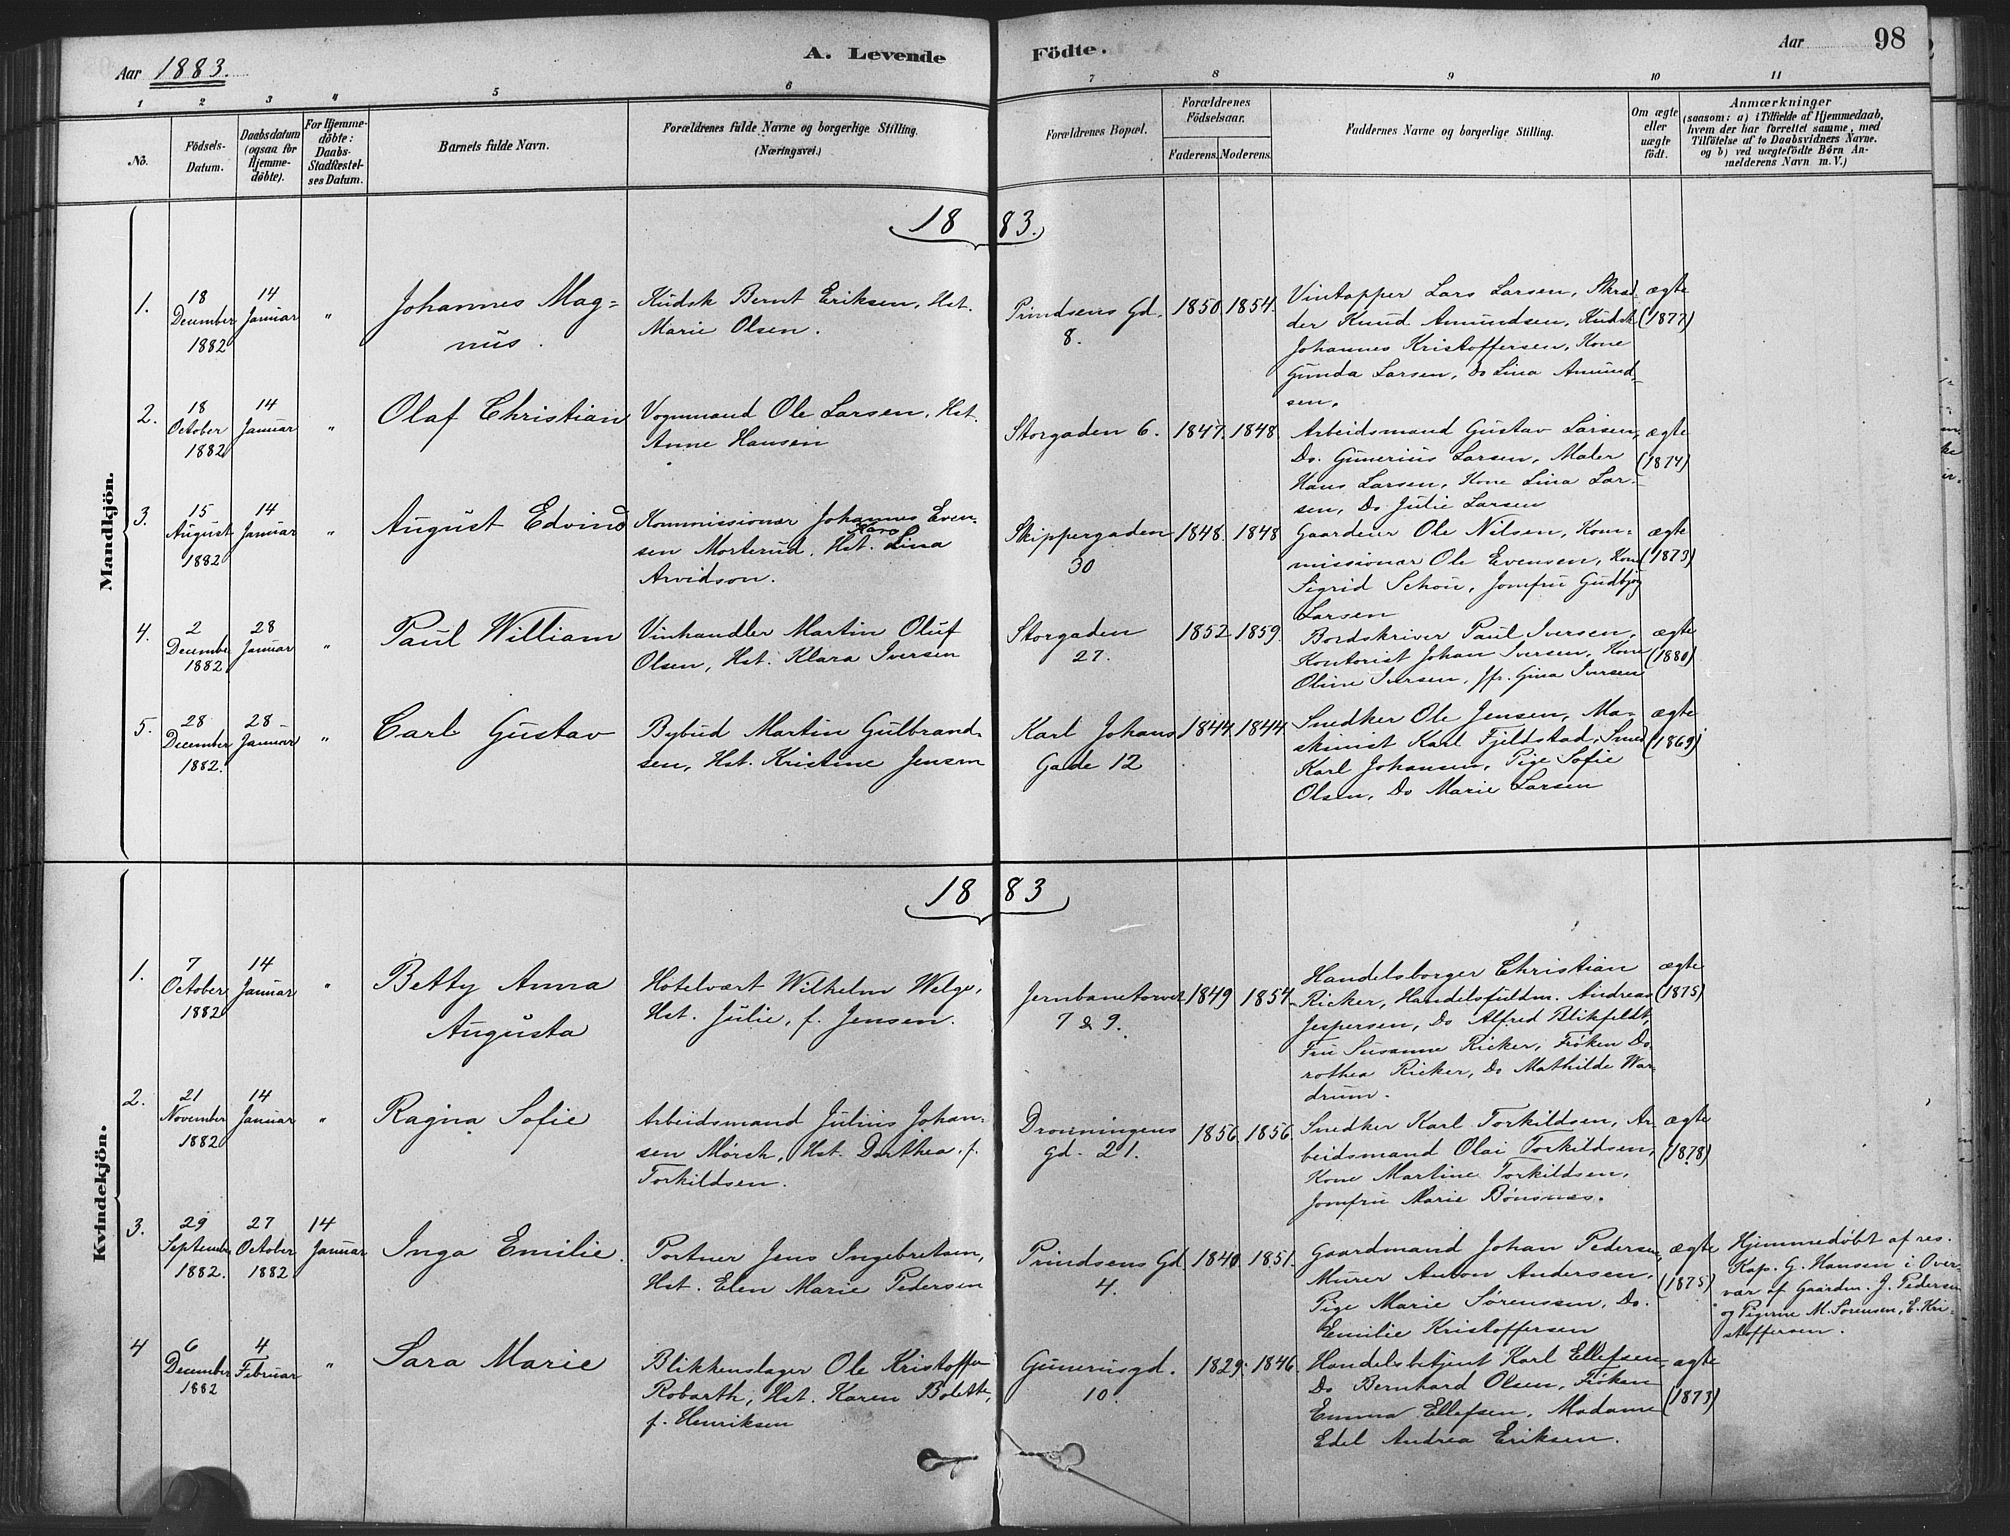 Aar 1883.
A. Levende
Födte.
Aar
98
1
2
3
4
5
6
7
8
9
10
11
No.
Födsels-
Datum.
Daabsdatum
(ogsaa for
Hjemme-
döbte).
For Hjemme-
döbte:
Daabs-
Stadfæstel-
ses Datum.
Barnets fulde Navn.
Forældrenes fulde Navne og borgerlige Stilling.
(Næringsvei.)
Forældrenes Bopæl.
Forældrenes
Födselsaar.
Faderens.
Moderens.
Faddernes Navne og borgerlige Stilling.
Om ægte
eller
uægte
födt.
Anmærkninger
(saasom: a) i Tilfælde af Hjemmedaab,
hvem der har forrettet samme, med
Tilföielse af to Daabsvidners Navne.
og b) ved uægtefödte Börn An-
melderens Navn m. V.)
Mandkjön.
1883.
1.
18
December
1882
14
Januar
"
Johannes Mag=
nus.
Kudsk Bernt Eriksen, Hst.
Marie Olsen.
Prindsens Gd.
8.
1850.
1854.
Vintapper Lars Larsen, Skræd-
der Knud Amundsen, Kudsk
Johannes Kristoffersen, Kone
Gunda Larsen, Do Lina Amund-
sen.
ægte
(1877)
2.
18
October
1882
14
Januar
"
Olaf Christian
Vognmand Ole Larsen, Hst.
Anne Hansen
Storgaden 6.
1847.
1848.
Arbeidsmand Gustav Larsen,
Do. Gunerius Larsen, Maler
Hans Larsen, Kone Lina Lar-
sen, Do Julie Larsen
ægte
(1874)
3.
15
August
1882
14
Januar
"
August Edvind
Kommissionær Johannes Even-
sen Morterud, Hst. Lina
Arvidson.
Skippergaden
30
1848.
1848
Gaardeier Ole Nilsen, Kom-
missionær Ole Evensen, Kone
Sigrid Schou, Jomfru Gudbjør
Larsen
ægte
(1873)
4.
2
December
1882
28
Januar
"
Paul William
Vinhandler Martin Oluf
Olsen, Hst. Klara Iversen
Storgaden
27.
1852
1859
Bordskriver Paul Iversen,
Kontorist Johan Iversen, Kone
Oline Iversen, Jfr. Gina Iversen
ægte
(1880)
5.
28
December
1882.
28
Januar
"
Carl Gustav
Bybud Martin Gulbrand-
sen, Hst. Kristine Jensen
Karl Johans
Gade 12
1844.
1844.
Snedker Ole Jensen, Ma-
skinist Karl Fjeldstad, Smed
Karl Johansen, Pige Sofie
Olsen, Do Marie Larsen
ægte
(1869)
Kvindekjön.
1883
1.
7
October
1882
14
Januar
"
Betty Anna
Augusta
Hotelvært Wilhelm Welge,
Hst. Julie, f. Jensen.
Jernbanetorvet
7 & 9.
1849
1854
Handelsborger Christian
Ricker, Handelsfuldm. Andreas
Jespersen, Do Alfred Blikfeldt,
Fru Susanne Ricker, Frøken Do-
rothea Ricker, Do Mathilde War-
drum.
ægte
(1875)
2.
21
November
1882
14
Januar
"
Ragna Sofie
Arbeidsmand Julius Johan-
sen Mørch, Hst. Dorthea, f.
Torkildsen.
Dronningens
gd. 21.
1856.
1856.
Snedker Karl Torkildsen, Ar-
beidsmand Olai Torkildsen,
Kone Martine Torkildsen,
Jomfru Marie Bønsnæs.
ægte
(1878)
3.
29
September
1882.
27
October
1882
14
Januar
Inga Emilie.
Portner Jens Ingebretsen,
Hst. Elen Marie Pedersen
Prindsens Gd.
4.
1840.
1851.
Gaardmand Johan Pedersen,
Murer Anton Andersen,
Pige Marie Sørenssen, Do.
Emilie Kristoffersen
ægte
(1875)
Hjemmedøbt af res.
Kap. G. Hansen i Over-
vær af Gaardm. J. Pedersen
og Pigerne M. Sørensen, E. Kri-
stoffersen.
4
6
December
1882
4
Februar
"
Sara Marie
Blikkenslager Ole Kristoffer
Robarth, Hst. Karen Bolette,
f. Henriksen
Gunerusgd.
10.
1829.
1846.
Handelsbetjent Karl Ellefsen,
Do Bernhard Olsen, Frøken
Emma Ellefsen, Madame
Edel Andrea Eriksen.
ægte
(1873)